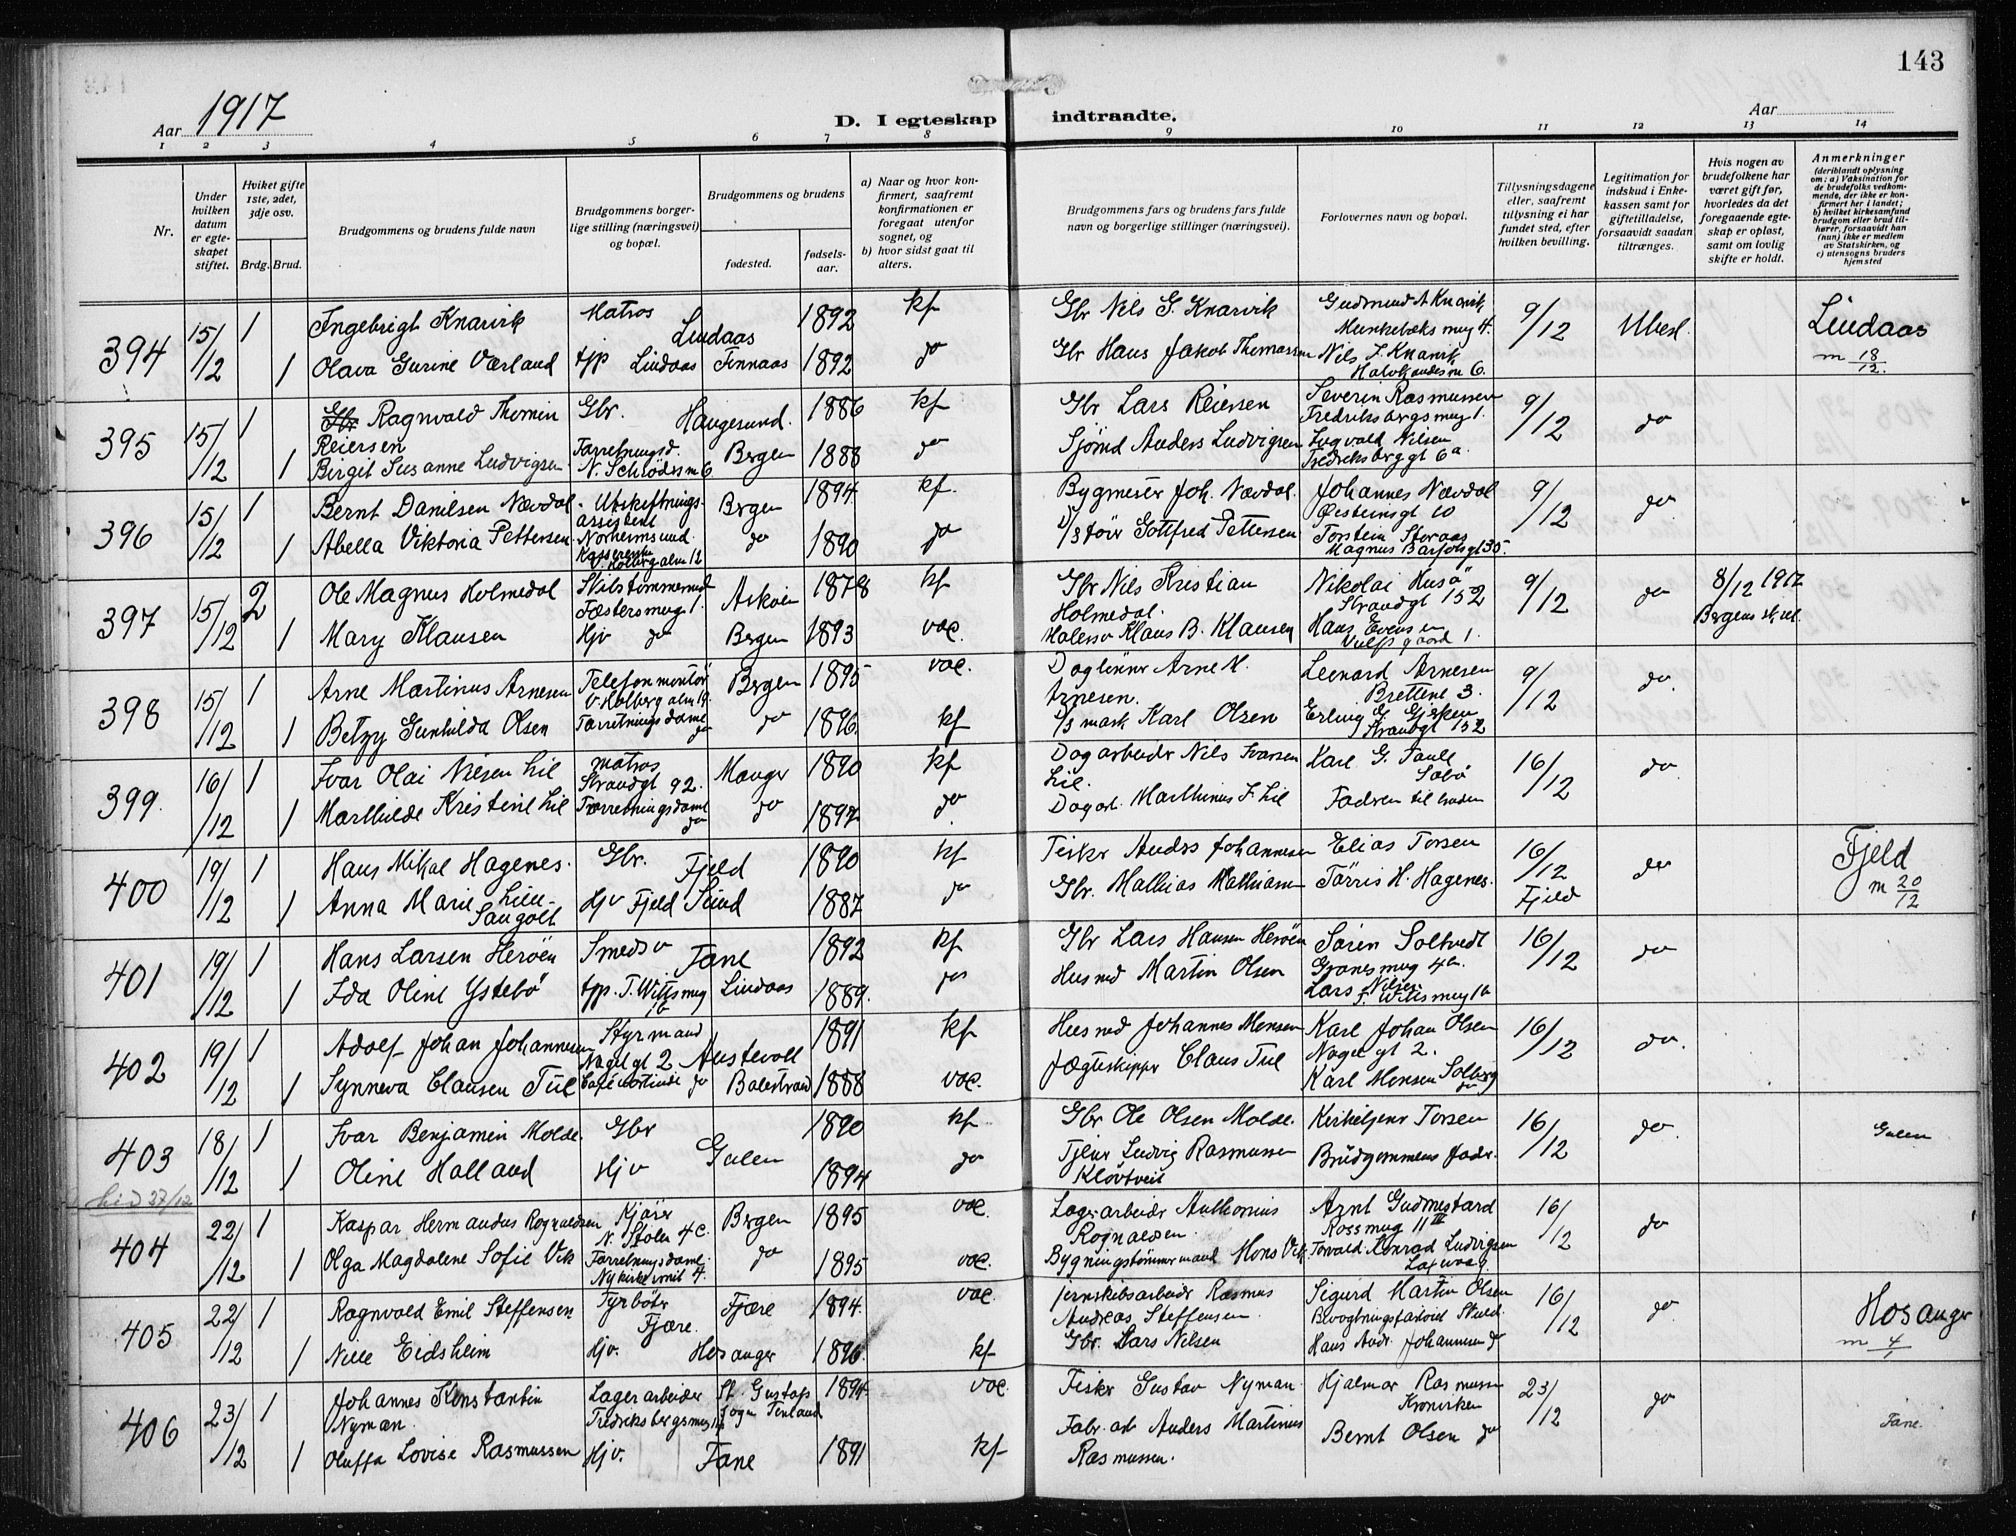 143
Aar 1917
D. I egteskap indtraadte.
Aar
1 2 3 4 5 6 7 8 9 10 11 12 13 14
Nr.
Under hvilken datum er egteskapet stiftet.
Hviket gifte 1ste, 2det, 3dje osv.
Brdg. Brud.
Brudgommens og brudens fulde navn
Brudgommens borgerlige stilling (næringsvei) og bopæl.
Brudgommens og brudens
fødested.
fødselsaar.
a) Naar og hvor konfirmert, saafremt konfirmationen er foregaat utenfor sognet, og
b) hvor sidst gaat til alters.
Brudgommens fars og brudens fars fulde navn og borgerlige stillinger (næringsvei).
Forlovernes navn og bopæl.
Tillysningsdagene eller, saafremt tillysning ei har fundet sted, efter hvilken bevilling.
Legitimation for indskud i Enkekassen samt for giftetilladelse, forsaavidt saadan tiltrænges.
Hvis nogen av brudefolkene har været gift før, hvorledes da det foregaaende egteskap er opløst, samt om lovlig skifte er holdt.
Anmerkninger
(deriblandt oplysning om: a) Vaksination for de brudefolks vedkommende, der ikke er konfirmert her i landet; b) hvilket kirkesamfund brudgom eller brud tilhører, forsaavidt han (hun) ikke er medlem av Statskirken, og c) utensogns bruders hjemsted
394 15/12 1 Ingebrigt Knarvik Matros Lindaas 1892 kf Gbr Nils G. Knarvik Gudmund A Knarvik Munkebæks mug 4. 9/12 Ubesl. Lindaas
1 Olava Gurine Værland tjp Lindaas Finnaas 1892 do Gbr Hans Jakob Thomassen Nils J. Knarvik 6. m 18/12
395 15/12 1 Ragnvald Thomin Gbr. Haugesund. 1886 kf Gbr Lars Reiersen Severin Rasmussen Fredriksbergsmug 1. 9/12 do
Reiersen
1 Birgit Susanne Ludvigsen Farretningsd. N. Schröders m 6 Bergen 1888 do Sjömd Anders Ludvigsen Nilsen Fredriksberggt 6a.
396 15/12 1 Bernt Danilsen Nævdal Utskiftningsassistent Norheimsund. Bergen 1894. kf. Bygmester Joh. Nævdal. Johannes Nævdal Øisteinsgt 10 9/12 do
1 Abella Viktoria Pettersen V. Holbergalm 12 do 1890 do Gottfred Pettersen Torstein Storaas Magnus Barfotsgt 35.
397 15/12 2 Ole Magnus Holmedal Fæstersmug 1. Askøen 1878 kf Gbr Nils Kristian Holmedal. Nikolai Husø Strandgt 152 9/12 do 8/12 1917
1 Mary Klausen Hjv do Bergen 1893 vac. Klaus B. Klausen Hans Evensen 1. Bergens
398 15/12 1 Arne Martinus Arnesen Telefonmontør V. Holberg alm 19. Bergen 1895 vac. Daglönner Arne M. Arnesen. Leonard Arnesen Brettene 3. 9/12 do
1 Betzy Gunhilda Olsen Farretningsdame do do 1896. kf Karl Olsen Erling G. Strandgt 152
399. 16/12 1 Ivar Olai Nilsen Lil matros Strandgt 92. Manger 1890 kf Dagarbeider Nils Ivarsen Lil. Karl G. 16/12 do.
1 Marthilde Kristine Lil Farretningsdame do do 1897. do Dagarb. Marthinus I. Lil Fadren til bruden
400 19/12 1 Hans Mikal Hagenes. Gbr. Fjeld 1890 kf Fisker Anders Johannesen Elias Torsen 16/12 do Fjeld
1 Anna Marie Hjv Fjeld Sund 1887 do Gbr. Mathias Mathiasen Törris H. Hagenes. Fjeld m 20/12
401 19/12 1 Hans Larsen Herøen Smedsv Fane 1892 kf Gbr Lars Hansen Herøen Søren Soltvedt Granesmug 4a. 16/12 do
1 Ida Oline Ystebø tjp. J. Wittsmug 1b Lindaas 1889. do Husmd Martin Olsen Lars Nilsen J. Witts mug 1b
402 19/12 1 Adolf Johan Johannesen Styrmand Nagelgt 2 Austevoll 1891 kf Husmd Johannes Monsen Karl Johan Olsen Nagelgt 2. 16/12 do.
1 Synneva Clausen Tul do Balestrand 1888 vac. Jægteskipper Claus Tul Karl Monsen Solberg do
403 18/12 1 Ivar Benjamin Molde. Gbr Gulen 1890 kf Gbr Ole Olsen Molde. Kirketjener Torsen 16/12 do. Gulen
1 Oline Halland Hjv 1894 do Ludvig Rasmussen Kløvtveit Brudgommens fader.
27/12
404 22/12 1 Kaspar Hermandus Rognaldsen N. Stølen 4c. Bergen 1895 vac. Lagerarbeider Anthonius Rognaldsen. Arnt Gudmestard Rossmug 11 III 16/12 do
1 Olga Magdalene Sofie Vik Farretningsdame Nykirkesmit 4. do 1895 vac. Bygningstømmermand Mons Vik. Torvald Konrad Ludvigsen
405 22/12 1 Ragnvald Emil Steffensen Fyrbøter Fjære. Fjære 1894. vac. Jernskibsarbeider Rasmus Andreas Steffensen Sigurd Martin Olsen 16/12 do Hosanger
1 Nille Eidsheim Hjv. Hosanger 1896. kf Gbr. Lars Nilsen Hans Andr. Johannesen do m 4/1
406 23/12 1 Johannes Konstantin Nyman. Lagerarbeider Fredriksbergsmug St. Gustafs sogn Finland 1894. vac. Fisker Gustav Nyman. Hjalmar Rasmussen Kronviken 23/12 do
1 Oluffa Lovise Rasmussen Hjv. Fane 1891 kf Fabr. arb Anders Martinius Rasmussen. Bernt Olsen do Fane.